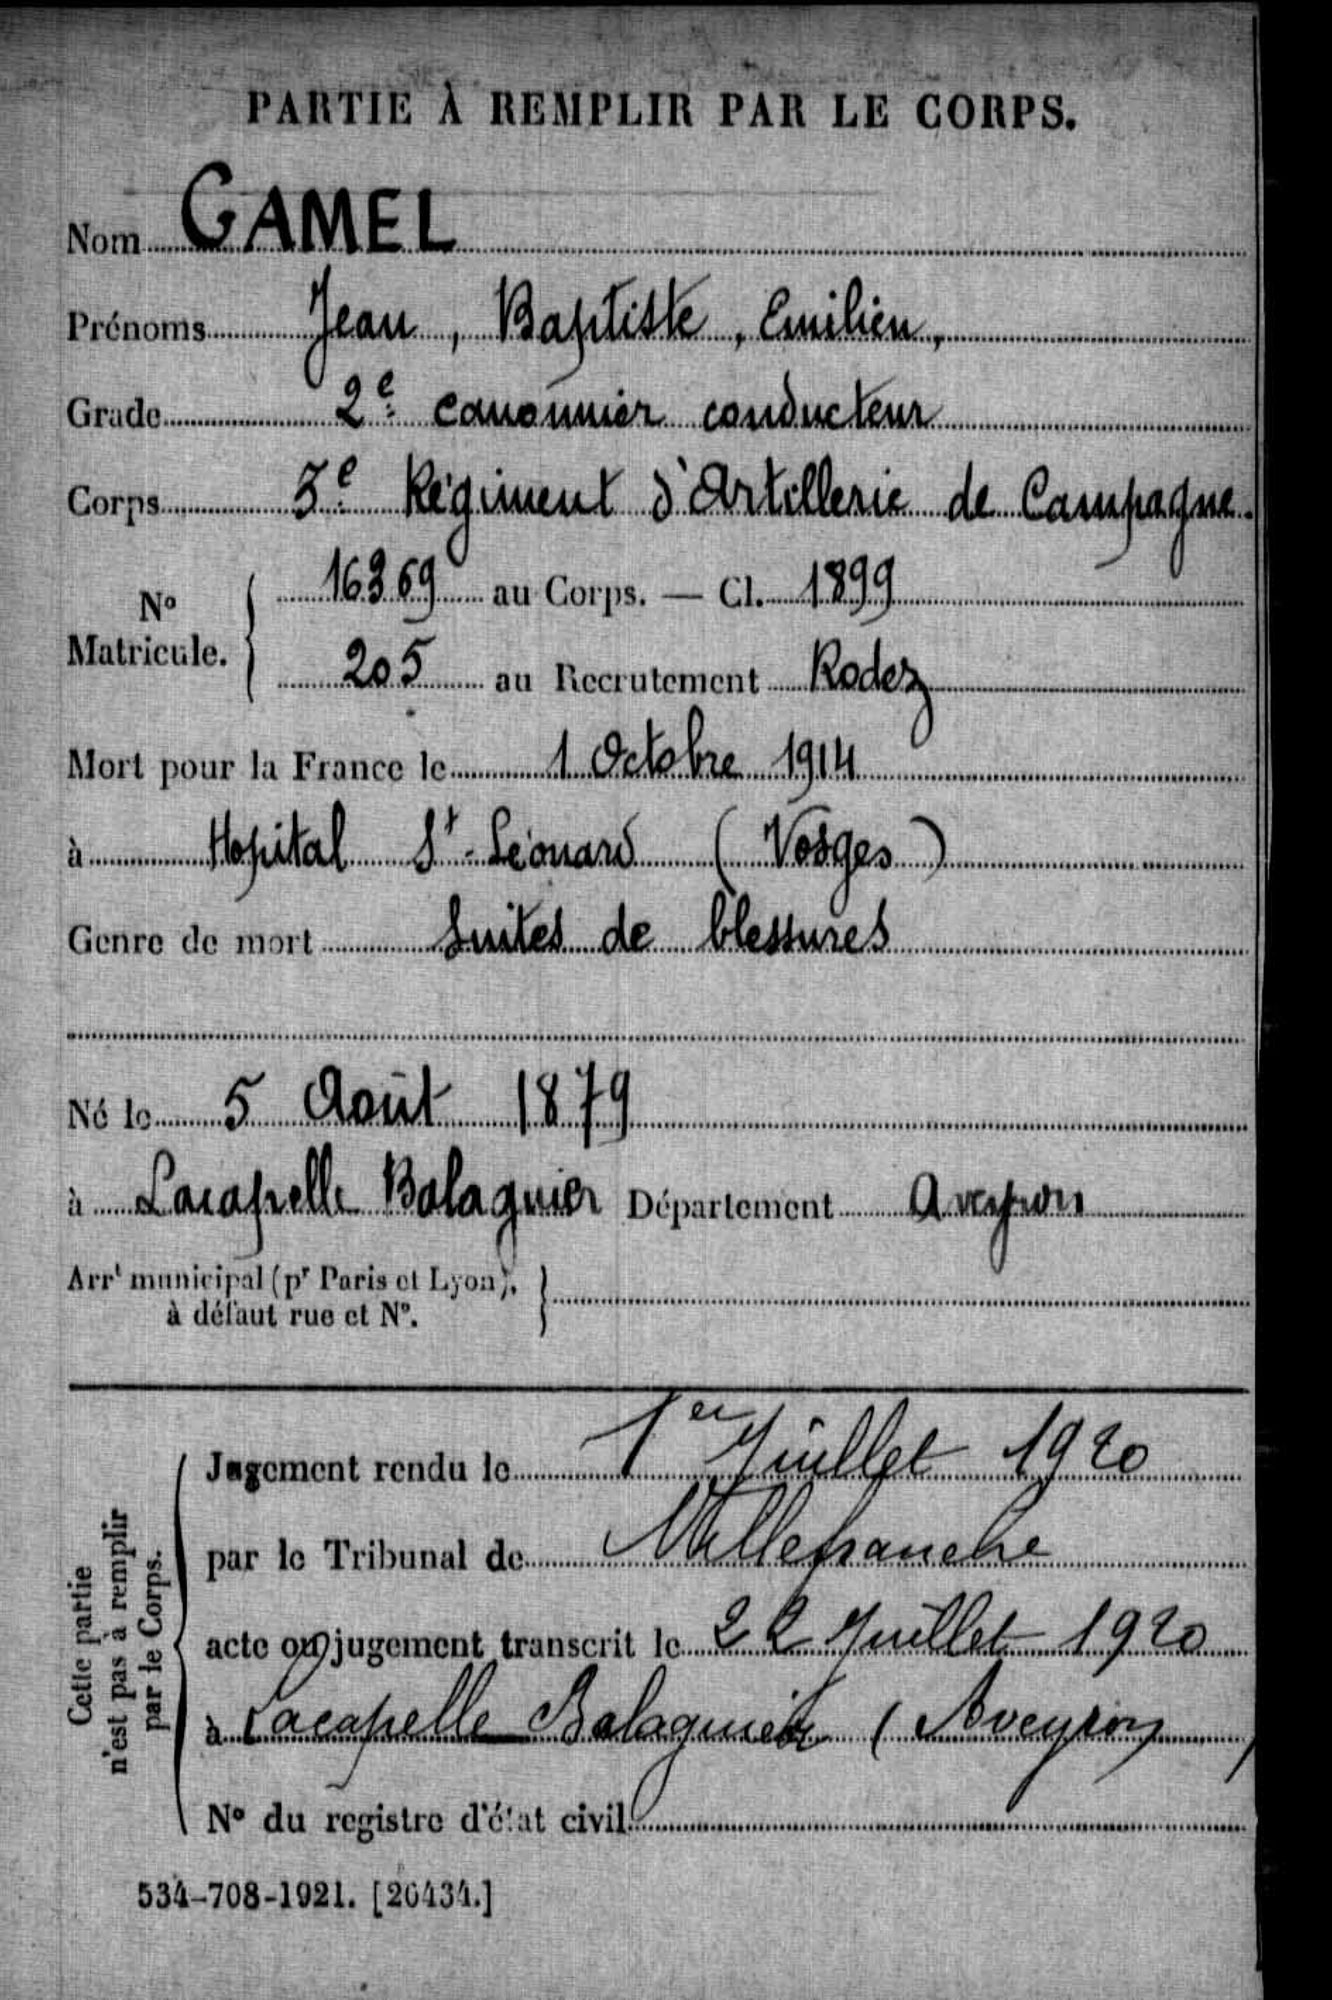 PARTIE À REMPLIR PAR LE CORPS.
Nom GAMEL
Prénoms Jean, Baptiste, Emilien,
Grade 2e canonnier conducteur
Corps 3e Régiment d'Artillerie de Campagne.
No Matricule. { 16369 au Corps. — Cl. 1899
205 au Recrutement Rodez
Mort pour la France le 1 Octobre 1914
à Hopital St-Léonard (Vosges)
Genre de mort Suites de blessures
Né le 5 Août 1879
à Lacapelle Balaguier Département Aveyron
Arrt municipal (pr Paris et Lyon), }
à défaut rue et No.
Cette partie n'est pas à remplir par le Corps.
Jugement rendu le 1er Juillet 1920
par le Tribunal de Villefranche
acte ou jugement transcrit le 22 Juillet 1920
à Lacapelle Balaguier (Aveyron)
No du registre d'état civil
534-708-1921. [26434.]